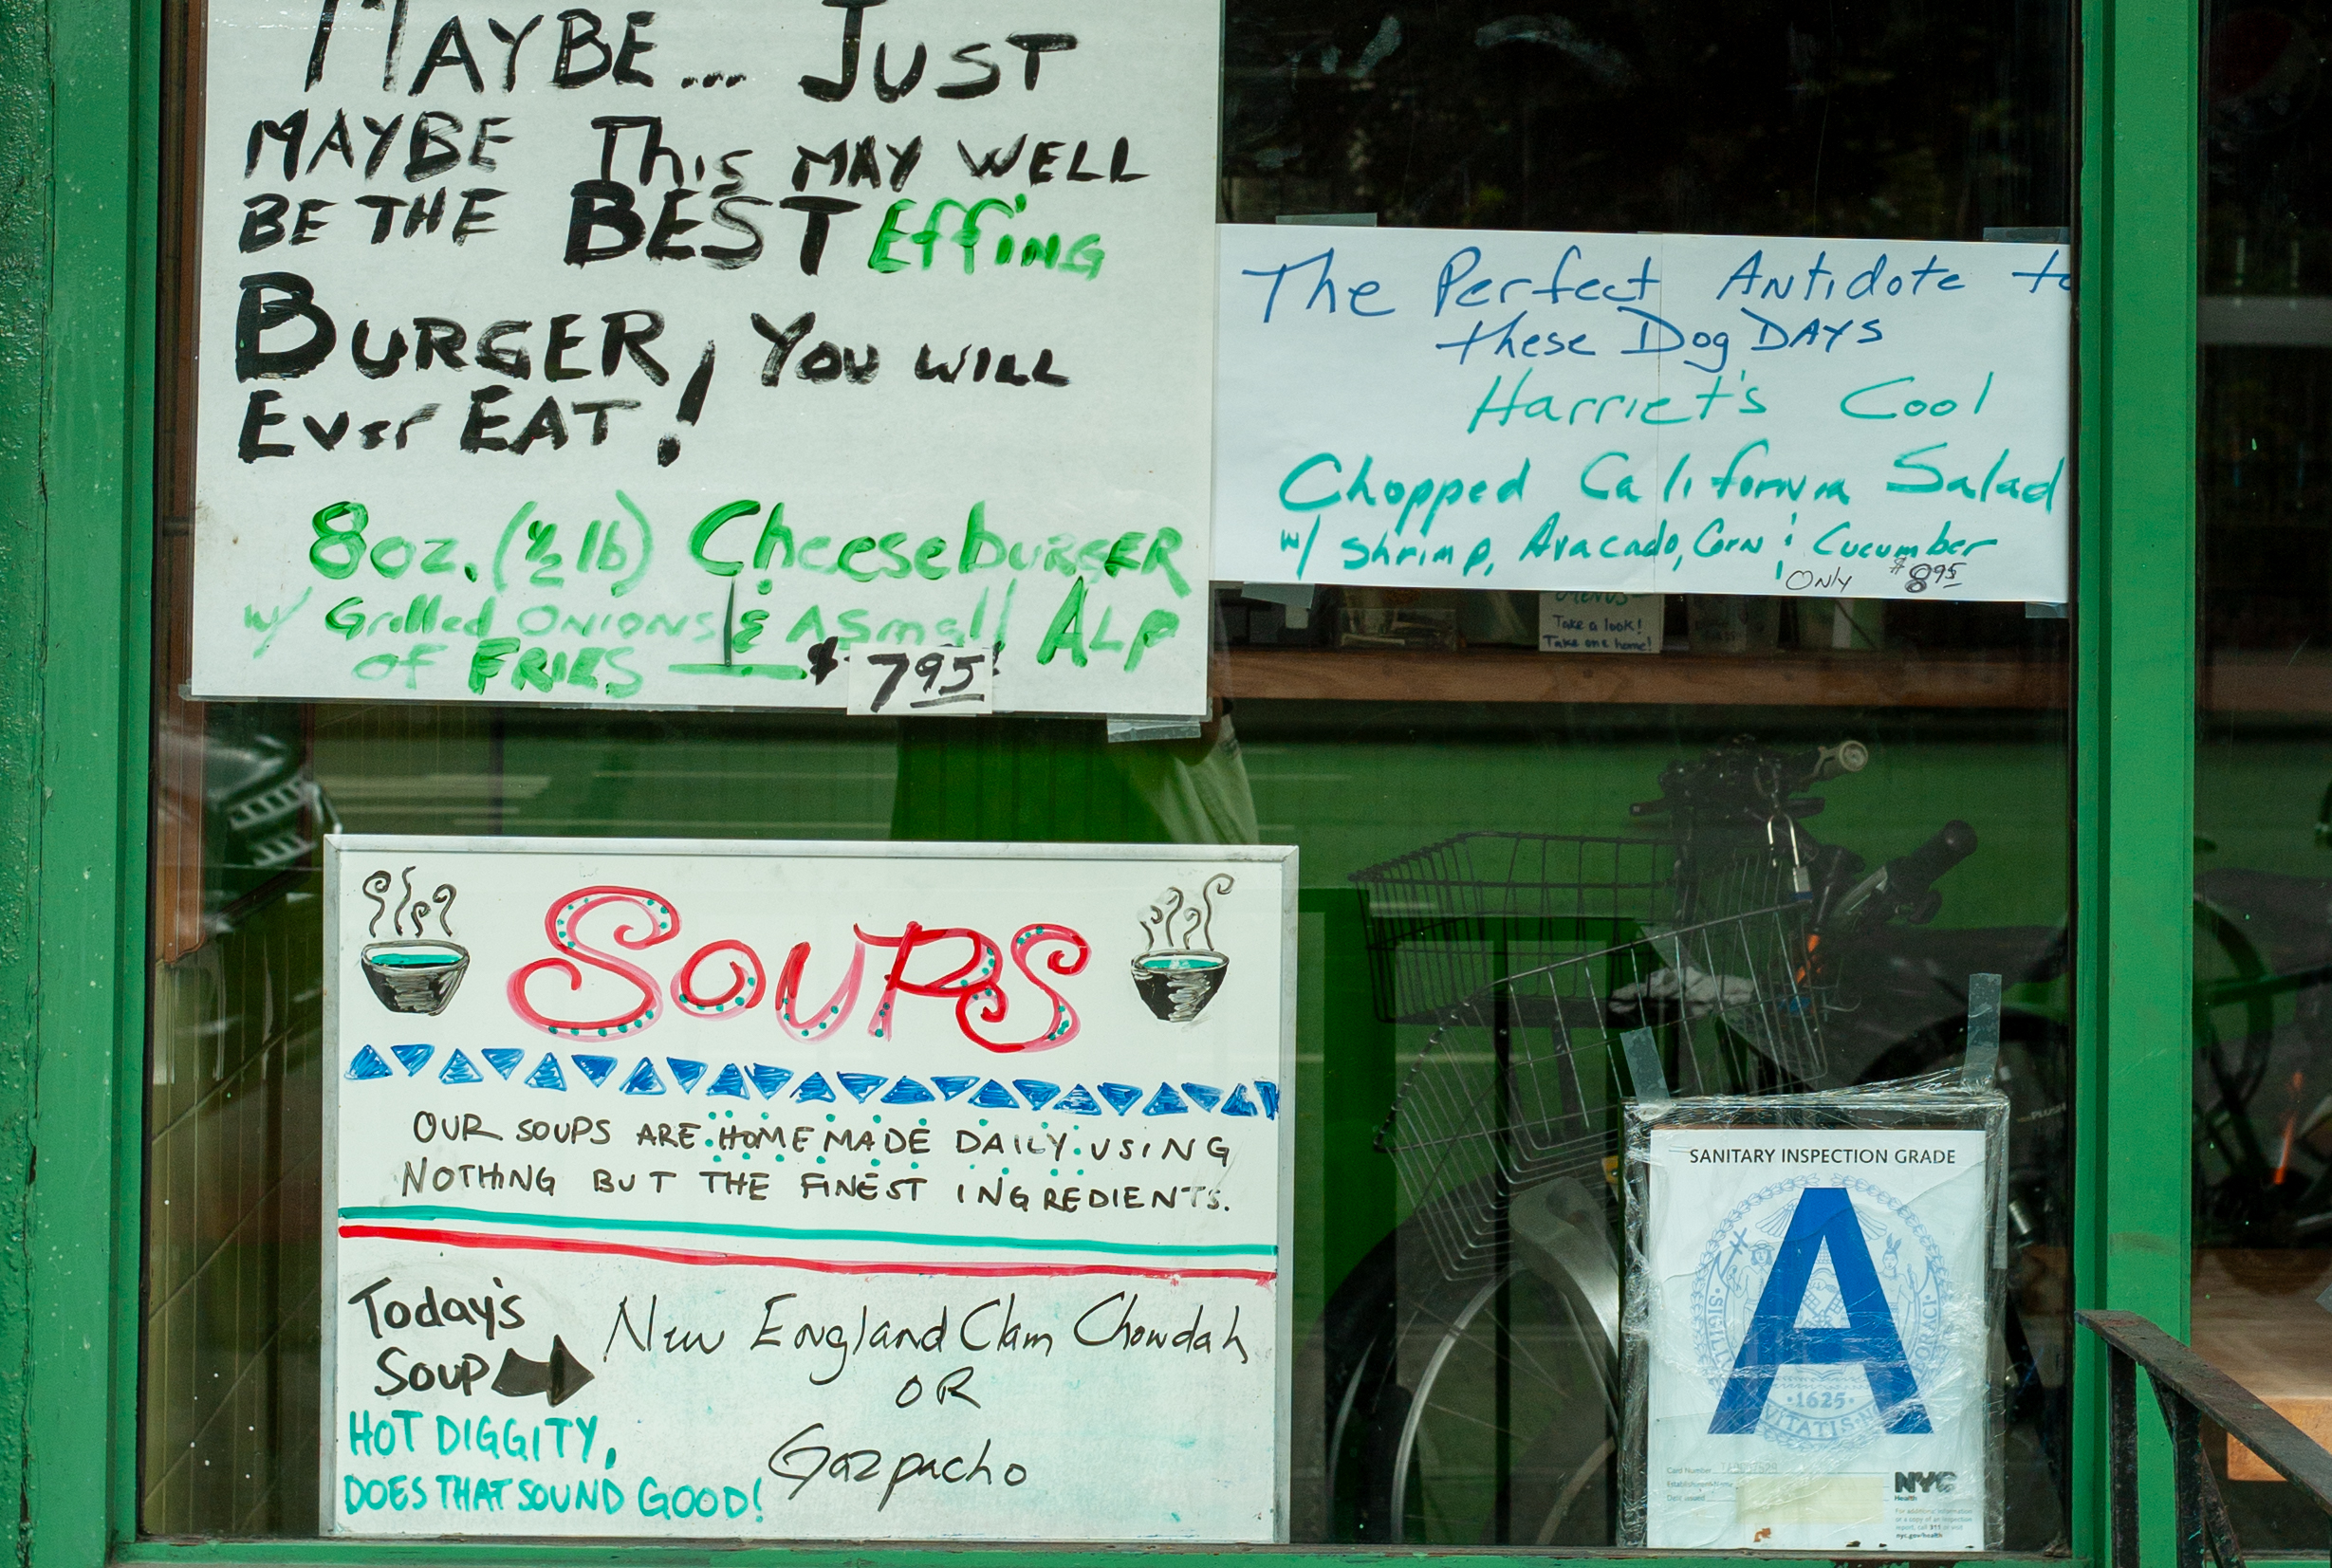 MAYBE... JUST
MAYBE This MAY WELL
BE THE BEST Effing
BURGER, YOU WILL
Ever EAT!
8oz. (½ lb) CheeseburgER
w/ Grilled ONIONS & A Small Alp
of FRIES — $7.95!
The Perfect Antidote to
these Dog DAYS
Harriet's Cool
Chopped California Salad
w/ Shrimp, Avacado, Corn & Cucumber
Only $8.95
Menus-
Take a look!
Take one home!
SOUPS
OUR SOUPS ARE HOMEMADE DAILY USING
NOTHING BUT THE FINEST INGREDIENTS.
Today's
Soup
New England Clam Chowdah
OR
Gazpacho
HOT DIGGITY,
DOES THAT SOUND GOOD!
SANITARY INSPECTION GRADE
A
1625
Card Number
Date Issued
NYC
Health
For additional information
or a copy of an inspection
report, call 311 or visit
nyc.gov/health